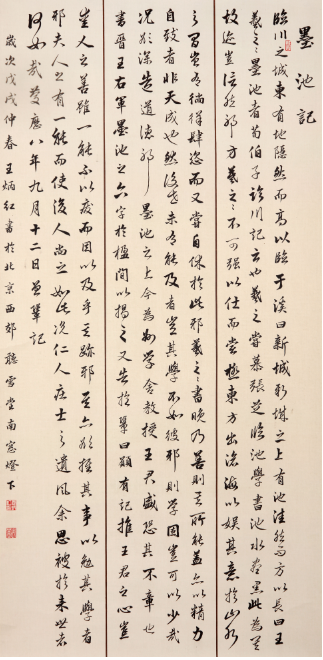 墨池記
臨川之城東有地隱然而高以臨于溪曰新城新城之上有池洼然而方以長曰王
羲之之墨池者荀伯子臨川記云也羲之嘗慕張芝臨池學書池水盡黑此為其
故迹豈信然邪方羲之之不可強以仕而嘗極東方出滄海以娛其意於山水
之間豈有徜徉肆恣而又嘗自休於此邪羲之之書晚乃善則其所能蓋亦以精力
自致者非天成也然後世未有能及者豈其學不如彼邪則學固豈可以少哉
況欲深造道德邪墨池之上今為州學舍教授王君盛恐其不章也
書晉王右軍墨池之六字於楹間以揭之又告於鞏曰願有記推王君之心豈
愛人之善雖一能不以廢而因以及乎其跡邪其亦欲推其事以勉其學者
邪夫人之有一能而使後人尚之如此況仁人莊士之遺風余思被於來世者
何如哉慶曆八年九月十二日曾鞏記
歲次戊戌仲春王炳紅書於北京西郊聽雪堂南窗燈下